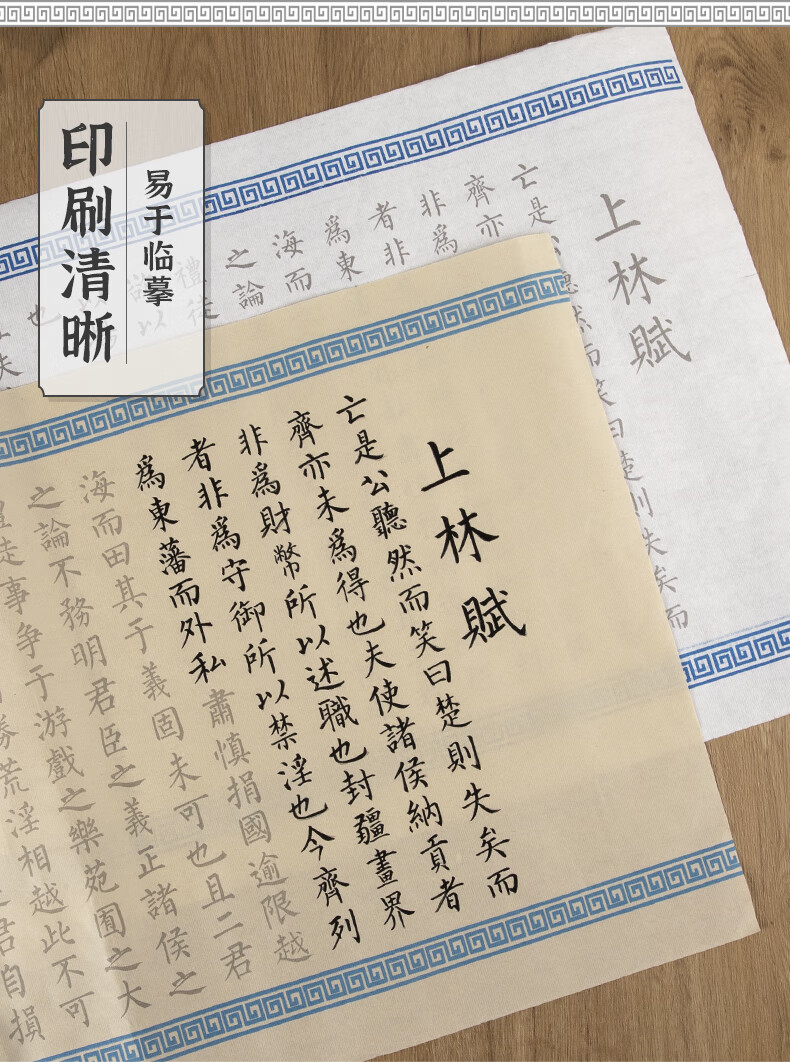 印刷清晰
易于临摹
上林賦
亡是公聽然而笑曰楚則失矣而
齊亦未爲得也夫使諸侯納貢者
非爲財幣所以述職也封疆畫界
者非爲守御所以禁淫也今齊列
爲東藩而外私肅慎捐國逾限越
海而田其于義固未可也且二君
之論不務明君臣之義正諸侯之
徒事争于游戲之樂苑囿之大
勝荒淫相越此不可
君自損
上林賦
亡是
然而笑曰楚則失矣而
齊亦
非爲
者非
爲東
海而
之論
禮徒
以
也